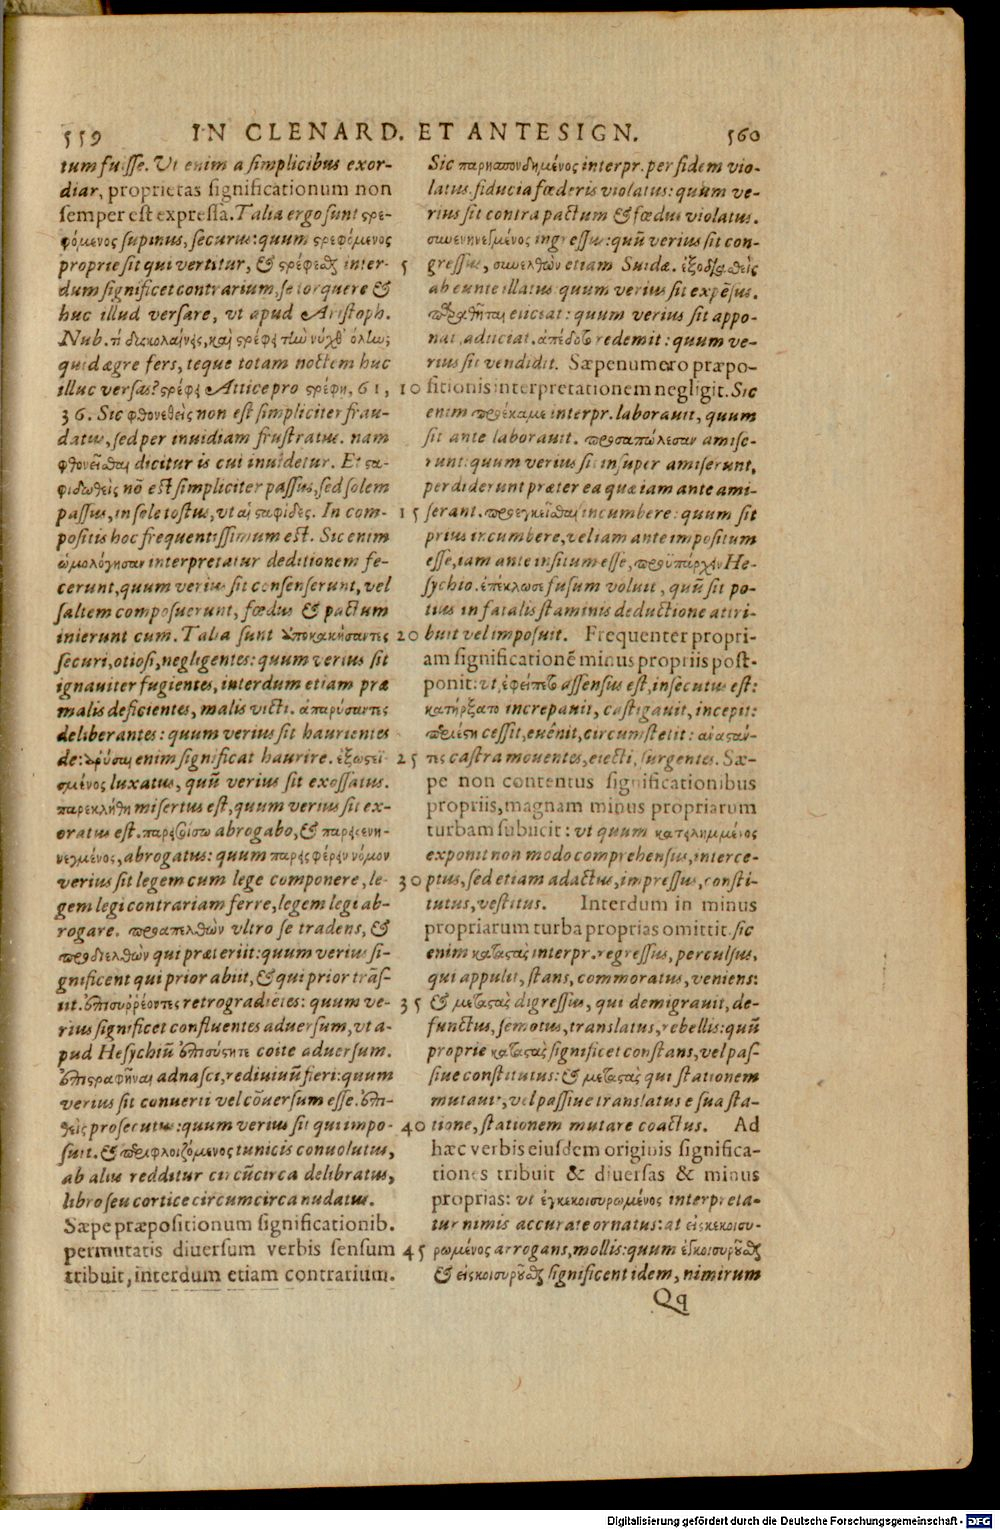 559 IN CLENARD. ET ANTESIGN. 560
tum fuisse. Ut enim a simplicibus exor-
diar, proprietas significationum non
semper est expressa. Talia ergo sunt ςρε-
φόμενος supinus, securus: quum ςρεφόμενος
proprie sit qui vertitur, & ςρέφεσθαι inter-
dum significet contrarium, se torquere &
huc illud versare, vt apud Aristoph.
Nub. τί δυσκολαίνεις, καὶ ςρέφει τὴν νύχθ' ὅλην;
quid ægre fers, teque totam noctem huc
illuc versas? ςρέφει Attice pro ςρέφῃ, 61,
36. Sic φθονεθεὶς non est simpliciter frau-
datus, sed per inuidiam frustratus. nam
φθονεῖσθαι dicitur is cui inuidetur. Et ςα-
φιδωθεὶς nō est simpliciter passus, sed solem
passus, in sole tostus, vt αἱ ςαφίδες. In com-
positis hoc frequentissimum est. Sic enim
ὡμολόγησαν interpretatur deditionem fe-
cerunt, quum verius sit consenserunt, vel
saltem composuerunt, fœdus & pactum
inierunt cum. Talia sunt ὑποκακήσαντες
securi, otiosi, negligentes: quum verius sit
ignauiter fugientes, interdum etiam præ
malis deficientes, malis victi. ἀπαρύσαντες
deliberantes: quum verius sit haurientes
de: ἀρύσαι enim significat haurire. ἐξωςεϊ-
σμένος luxatus, quū verius sit exossatus.
παρεκλήθη misertus est, quum verius sit ex-
oratus est. παρεισοίσω abrogabo, & παρεισενη-
νεγμένος, abrogatus: quum παρεισφέρειν νόμον
verius sit legem cum lege componere, le-
gem legi contrariam ferre, legem legi ab-
rogare. προαπελθὼν vltro se tradens, &
προδιελθὼν qui præteriit: quum verius si-
gnificent qui prior abiit, & qui prior trās-
iit. ἐπισυῤῥέοντες retrogradiētes: quum ve-
rius significet confluentes aduersum, vt a-
pud Hesychiū ἐπισύςητε coite aduersum.
ἐπιςραφῆναι adnasci, rediuiuū fieri: quum
verius sit conuerti vel cōuersum esse. ἐπι-
θεὶς prosecutus: quum verius sit qui impo-
suit. & περιφλοιζόμενος tunicis conuolutus,
ab aliis redditur circūcirca delibratus,
libro seu cortice circumcirca nudatus.
Sæpe præpositionum significationib.
permutatis diuersum verbis sensum
tribuit, interdum etiam contrarium.
Sic παρησπονδημένος interpr. per fidem vio-
latus, fiducia fœderis violatus: quum ve-
rius sit contra pactum & fœdus violatus.
συνενηνεγμένος ingressus: quū verius sit con-
5 gressus, συνελθὼν etiam Suidæ. ἐξοδιασθεὶς
ab eunte illatus: quum verius sit expēsus.
πραθῆναι eiiciat: quum verius sit appo-
nat, aduciat. ἀπέδοτο redemit: quum ve-
rius sit vendidit. Sæpenumero præpo-
10 sitionis interpretationem negligit. Sic
enim προέκαμε interpr. laborauit, quum
sit ante laborauit. προσαπώλεσαν amise-
runt: quum verius sit insuper amiserunt,
perdiderunt præter ea quæ iam ante ami-
15 serant. προεγκεῖσθαι incumbere: quum sit
prius incumbere, vel iam ante impositum
esse, iam ante insitum esse, προϋπάρχειν He-
sychio. ἐπέκλωσε fusum voluit, quū sit po-
tius in fatalis staminis deductione attri-
20 buit vel imposuit. Frequenter propri-
am significationē minus propriis post-
ponit: vt, ἐφείπετο assensus est, insecutus est:
κατήρξατο increpauit, castigauit, incepit:
περιέςη cessit, euēnit, circumstetit: ἀναςάν-
25 τες castra mouentes, eiecti, surgentes. Sæ-
pe non contentus significationibus
propriis, magnam minus propriarum
turbam subiicit: vt quum κατειλημμένος
exponit non modo comprehensus, interce-
30 ptus, sed etiam adactus, impressus, consti-
tutus, vestitus. Interdum in minus
propriarum turba proprias omittit. sic
enim καταςὰς interpr. regressus, perculsus,
qui appulit, stans, commoratus, veniens:
35 & μεταςὰς digressus, qui demigrauit, de-
functus, semotus, translatus, rebellis: quū
proprie καταςὰς significet constans, vel pas-
siue constitutus: & μεταςὰς qui stationem
mutauit, vel passiue translatus e sua sta-
40 tione, stationem mutare coactus. Ad
hæc verbis eiusdem originis significa-
tiones tribuit & diuersas & minus
proprias: vt ἐγκεκοισυρωμένος interpreta-
tur nimis accurate ornatus: at εἰσκεκοισυ-
45 ρωμένος arrogans, mollis: quum ἐγκοισυροῦσθαι
& εἰσκοισυροῦσθαι significent idem, nimirum
Qq
Digitalisierung gefördert durch die Deutsche Forschungsgemeinschaft - DFG